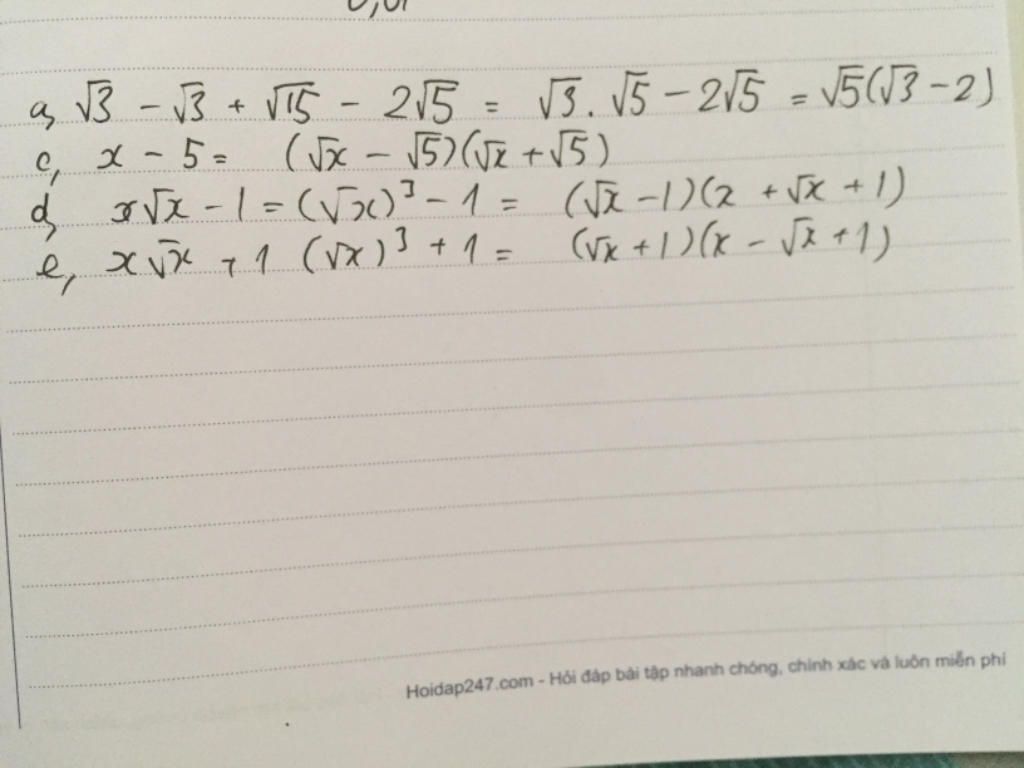 a, √3 - √3 + √15 - 2√5 = √3 . √5 - 2√5 = √5(√3 - 2)
c, x - 5 = (√x - √5)(√x + √5)
d, x√x - 1 = (√x)³ - 1 = (√x - 1)(x + √x + 1)
e, x√x + 1 (√x)³ + 1 = (√x + 1)(x - √x + 1)
Hoidap247.com - Hỏi đáp bài tập nhanh chóng, chính xác và luôn miễn phí